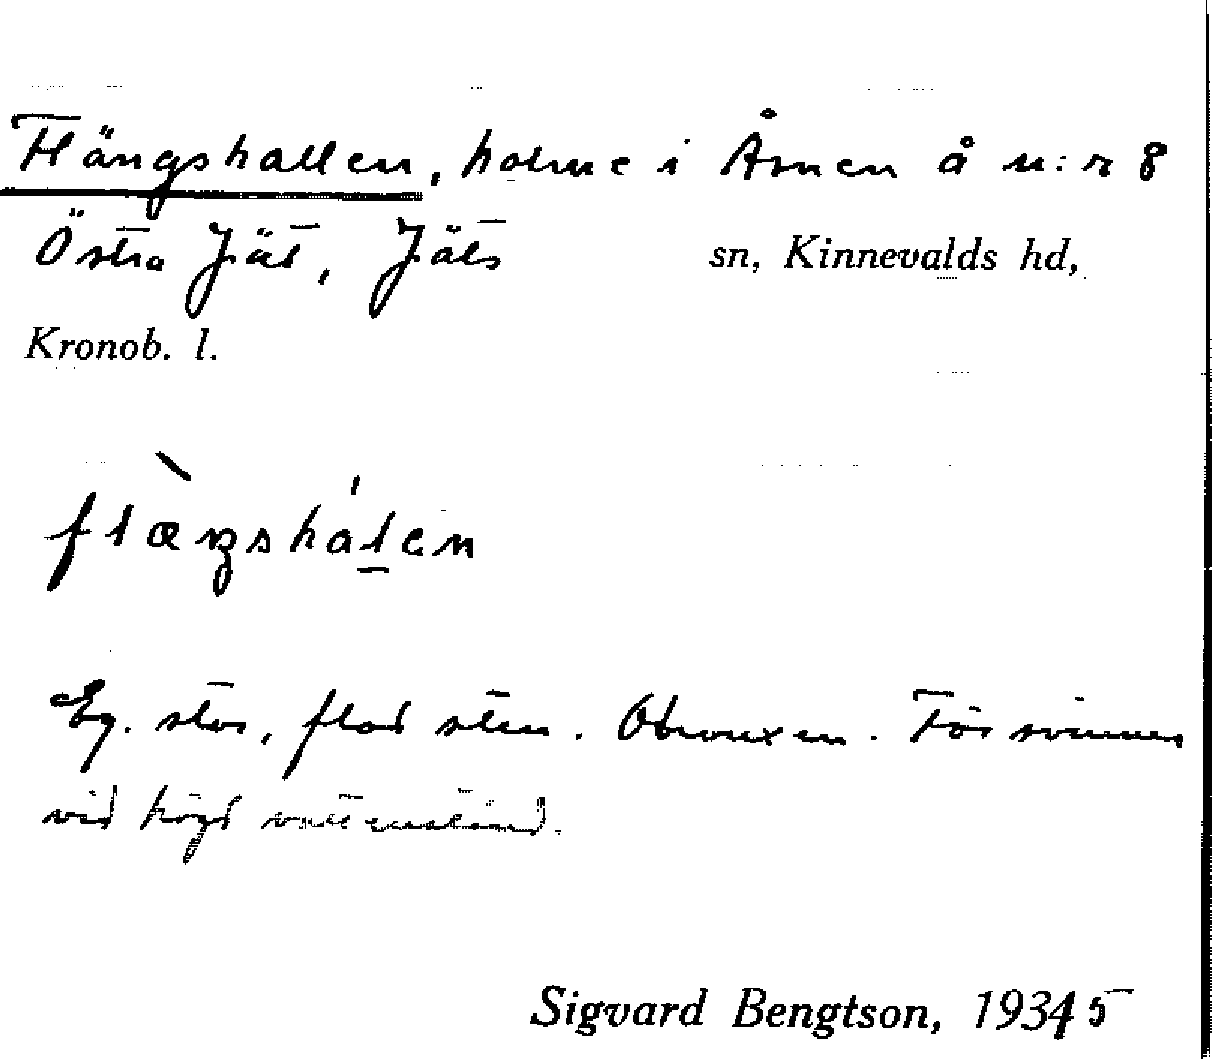 Flängshallen, holme i Åsnen å n:r 8
Östra Jät, Jäts sn, Kinnevalds hd,
Kronob. l.
flæŋshalen
Eg. stor, flat sten. Obevuxen. Försvinner
vid högt vattenstånd.
Sigvard Bengtson, 1935